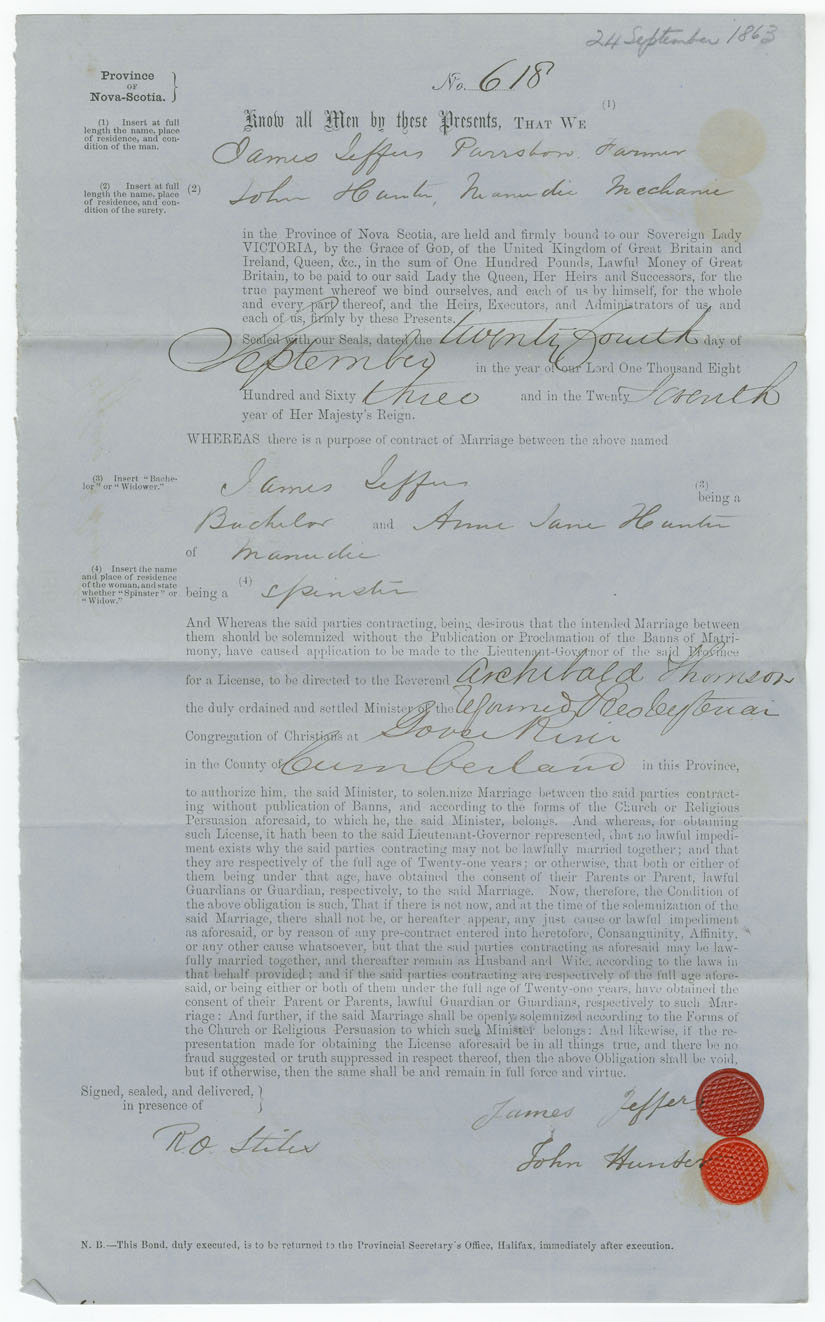 24 September 1863
Province
OF
Nova-Scotia.
No. 618
(1) Insert at full
length the name, place
of residence, and con-
dition of the man.
(1)
Know all Men by these Presents, THAT WE
James Jeffers Parrsboro Farmer
(2) Insert at full
length the name, place
of residence, and con-
dition of the surety.
(2) John Hunter, Manudie Mechanic
in the Province of Nova Scotia, are held and firmly bound to our Sovereign Lady
VICTORIA, by the Grace of GOD, of the United Kingdom of Great Britain and
Ireland, Queen, &c., in the sum of One Hundred Pounds, Lawful Money of Great
Britain, to be paid to our said Lady the Queen, Her Heirs and Successors, for the
true payment whereof we bind ourselves, and each of us by himself, for the whole
and every part thereof, and the Heirs, Executors, and Administrators of us, and
each of us, firmly by these Presents.
Sealed with our Seals, dated the twenty fourth day of
September in the year of our Lord One Thousand Eight
Hundred and Sixty three and in the Twenty Seventh
year of Her Majesty's Reign.
WHEREAS there is a purpose of contract of Marriage between the above named
(3) Insert "Bache-
lor" or "Widower."
James Jeffers (3) being a
Bachelor and Anne Jane Hunter
of Manudie
(4) Insert the name
and place of residence
of the woman, and state
whether "Spinster" or
"Widow."
being a (4) Spinster
And Whereas the said parties contracting, being desirous that the intended Marriage between
them should be solemnized without the Publication or Proclamation of the Banns of Matri-
mony, have caused application to be made to the Lieutenant-Governor of the said Province
for a License, to be directed to the Reverend Archibald Thomson
the duly ordained and settled Minister of the Reformed Presbyterian
Congregation of Christians at River
in the County of Cumberland in this Province,
to authorize him, the said Minister, to solemnize Marriage between the said parties contract-
ing without publication of Banns, and according to the forms of the Church or Religious
Persuasion aforesaid, to which he, the said Minister, belongs. And whereas, for obtaining
such License, it hath been to the said Lieutenant-Governor represented, that no lawful impedi-
ment exists why the said parties contracting may not be lawfully married together; and that
they are respectively of the full age of Twenty-one years; or otherwise, that both or either of
them being under that age, have obtained the consent of their Parents or Parent, lawful
Guardians or Guardian, respectively, to the said Marriage. Now, therefore, the Condition of
the above obligation is such, That if there is not now, and at the time of the solemnization of the
said Marriage, there shall not be, or hereafter appear, any just cause or lawful impediment
as aforesaid, or by reason of any pre-contract entered into heretofore, Consanguinity, Affinity,
or any other cause whatsoever, but that the said parties contracting as aforesaid may be law-
fully married together, and thereafter remain as Husband and Wife, according to the laws in
that behalf provided; and if the said parties contracting are respectively of the full age afore-
said, or being either or both of them under the full age of Twenty-one years, have obtained the
consent of their Parent or Parents, lawful Guardian or Guardians, respectively to such Mar-
riage: And further, if the said Marriage shall be openly solemnized according to the Forms of
the Church or Religious Persuasion to which such Minister belongs: And likewise, if the re-
presentation made for obtaining the License aforesaid be in all things true, and there be no
fraud suggested or truth suppressed in respect thereof, then the above Obligation shall be void,
but if otherwise, then the same shall be and remain in full force and virtue.
Signed, sealed, and delivered,
in presence of
James Jeffers
R.O. Stiles
John Hunter
N. B.—This Bond, duly executed, is to be returned to the Provincial Secretary's Office, Halifax, immediately after execution.